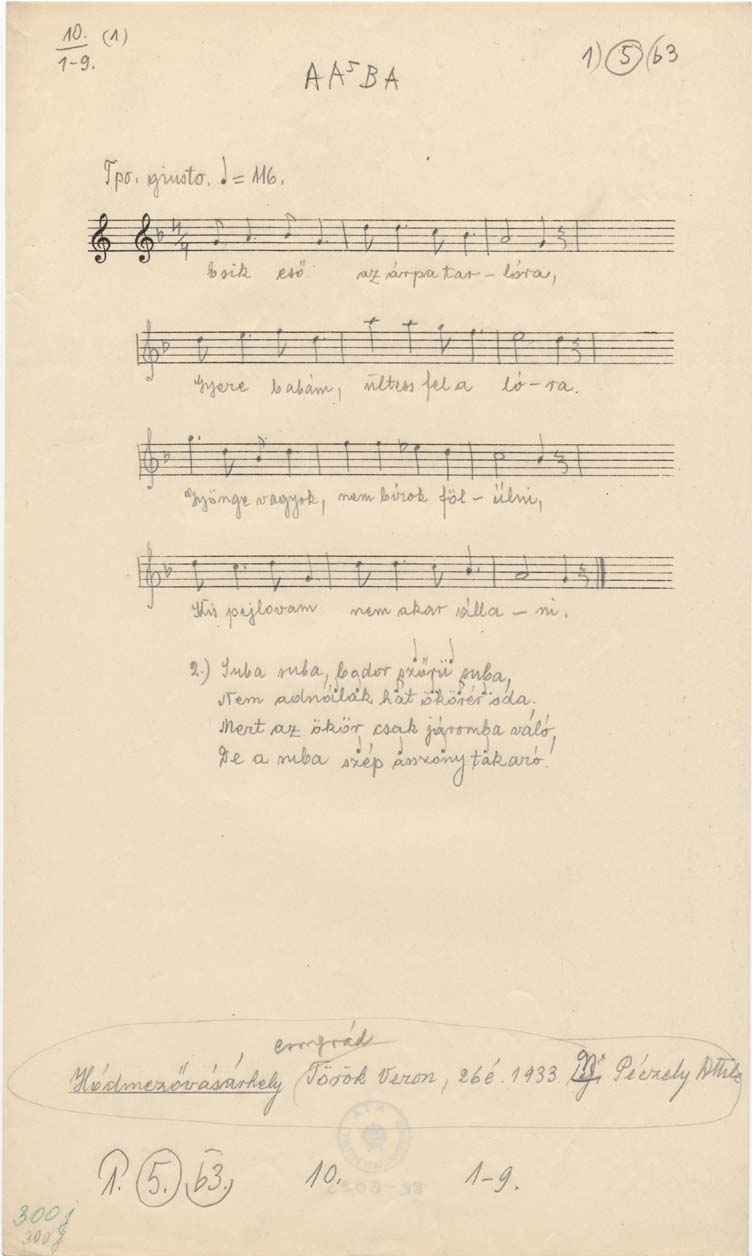 10. (1)
1-9.
1) 5 (b3
A A⁵ B A
Tpo. giusto. ♩ = 116.
4/4
Esik eső az árpa tar – lóra,
Gyere babám, ültess fel a ló – ra.
Gyönge vagyok, nem bírok föl – ülni,
Kis pejlovam nem akar álla – ni.
2.) Suba suba, bodor szőrű suba,
Nem adnálak hat ökörér oda,
Mert az ökör csak járomba való,
De a suba szép asszony takaró!
Csongrád
Hódmezővásárhely (Török Veron, 26 é. 1933. Gy. Péczely Attila
1. 5. b3. 10. 1-9.
300 j
300 j